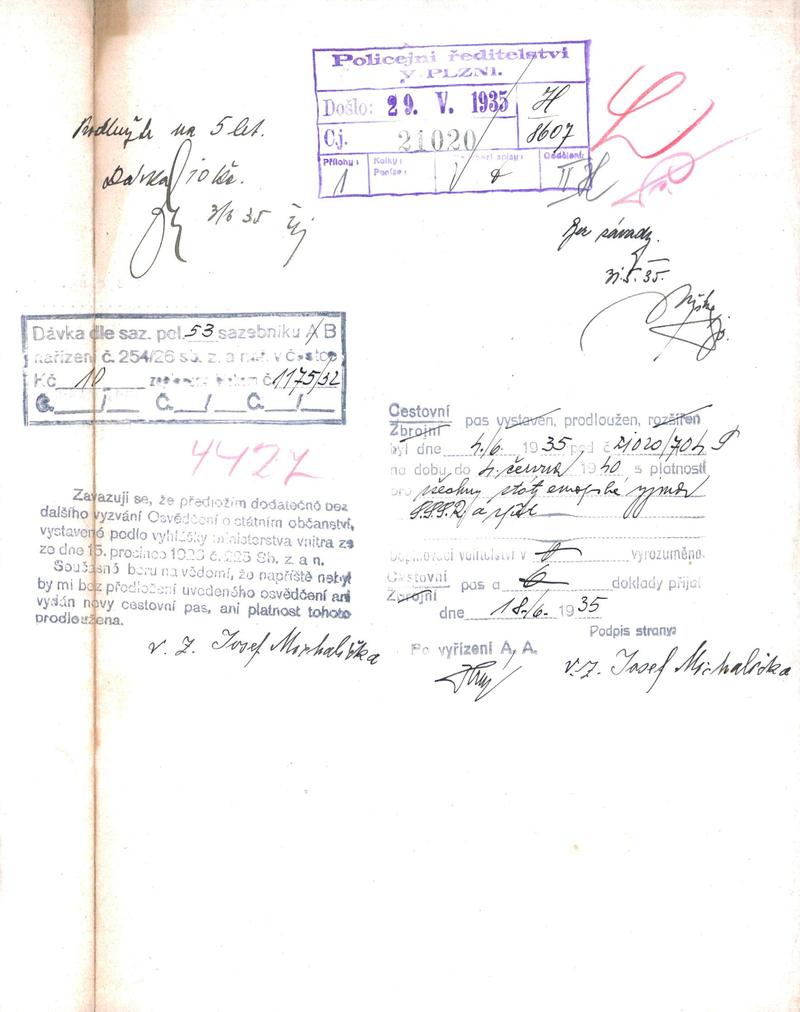 Policejní ředitelství
V PLZNI.
Došlo: 29. V. 1935
H
8607
Čj. 21020
Přílohy: 1
Kolky:
Peníze:
spisy:
Oddělení:
II
na 5 let.
Dávka 10 Kč.
3/6 35
Bez závady.
31.5.35.
Dávka dle saz. pol. 53 sazebníku A/B
nařízení č. 254/26 sb. z. a nař. v částce
Kč 10 č. 1175/32
Č. / Č. / Č. /
4427
Cestovní
Zbrojní
pas vystaven, prodloužen, rozšířen
byl dne 4./6. 1935 pod č. 21020/704
na dobu do 4. června 1940 s platností
pro všechny státy evropské vyjma
S.S.S.R. a zpět
Doplňovací velitelství v vyrozuměno.
Cestovní
Zbrojní
pas a doklady přijal
dne 18./6. 1935
Podpis strany:
Po vyřízení A, A.
v. z. Josef Michalička
Zavazuji se, že předložím dodatečně bez
dalšího vyzvání Osvědčení o státním občanství,
vystavené podle vyhlášky ministerstva vnitra ze
ze dne 15. prosince 1928 č. 225 Sb. z. a n.
Současně beru na vědomí, že napříště nebyl
by mi bez předložení uvedeného osvědčení ani
vydán nový cestovní pas, ani platnost tohoto
prodloužena.
v. z. Josef Michalička